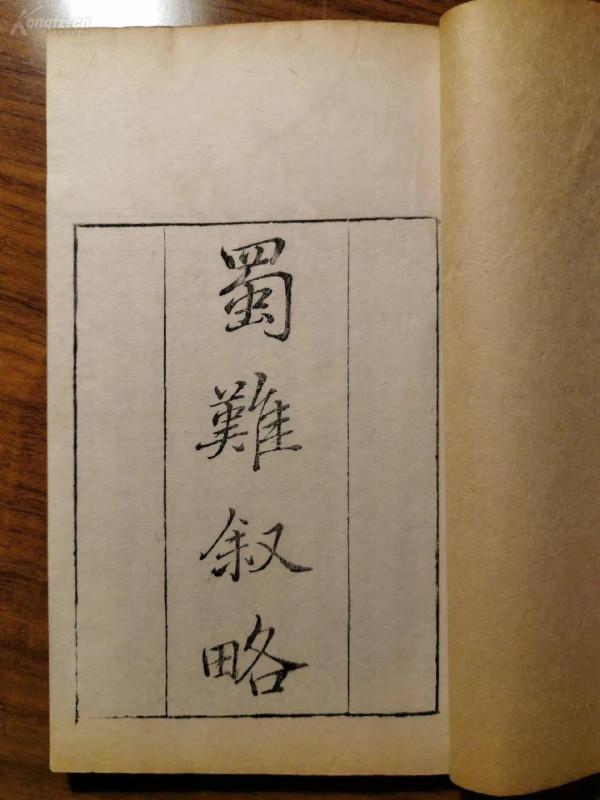 Kongfz.cn
蜀難叙略